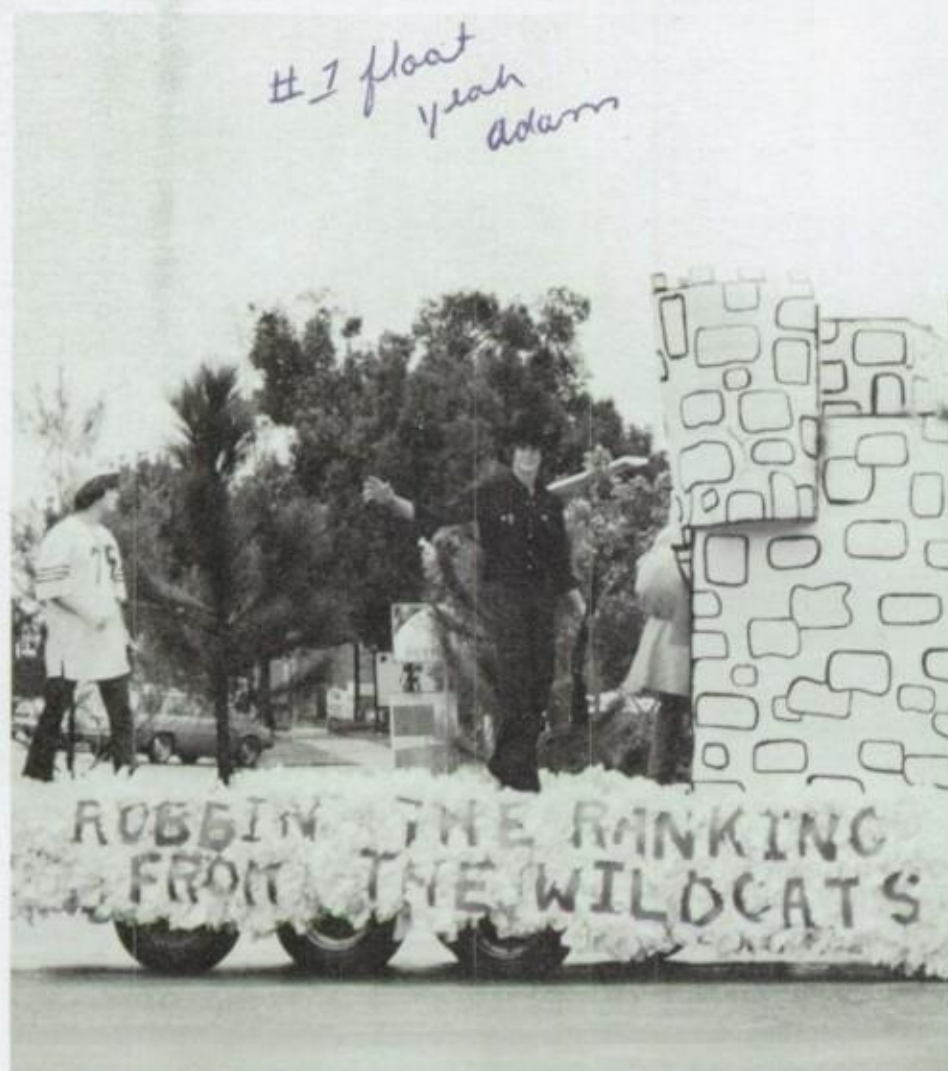 #1 float
yeah
Adams
75
ROBBIN THE RANKING
FROM THE WILDCATS